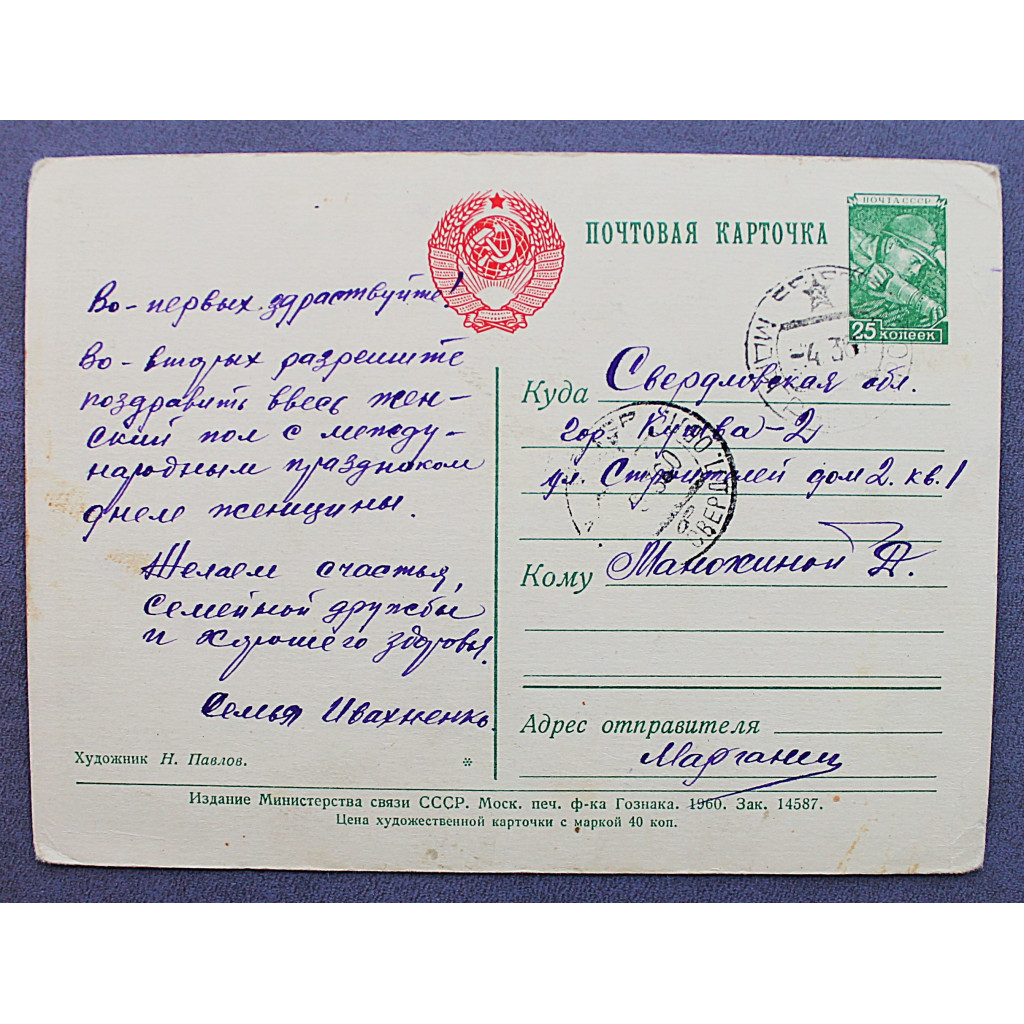 ПОЧТОВАЯ КАРТОЧКА
ПОЧТА СССР
25 КОПЕЕК
Во-первых здравствуйте!
Во-вторых разрешите
поздравить ввесь жен-
ский пол с между-
народным праздником
днем женщины.
Желаем счастья,
семейной дружбы
и хорошего здоровья.
Семья Ивахненко.
Художник Н. Павлов.
*
Куда Свердловская обл.
гор Кушва-2
ул. Строителей дом 2. кв. 1
Кому Манохиной А.
Адрес отправителя
Марганец
Издание Министерства связи СССР. Моск. печ. ф-ка Гознака. 1960. Зак. 14587.
Цена художественной карточки с маркой 40 коп.